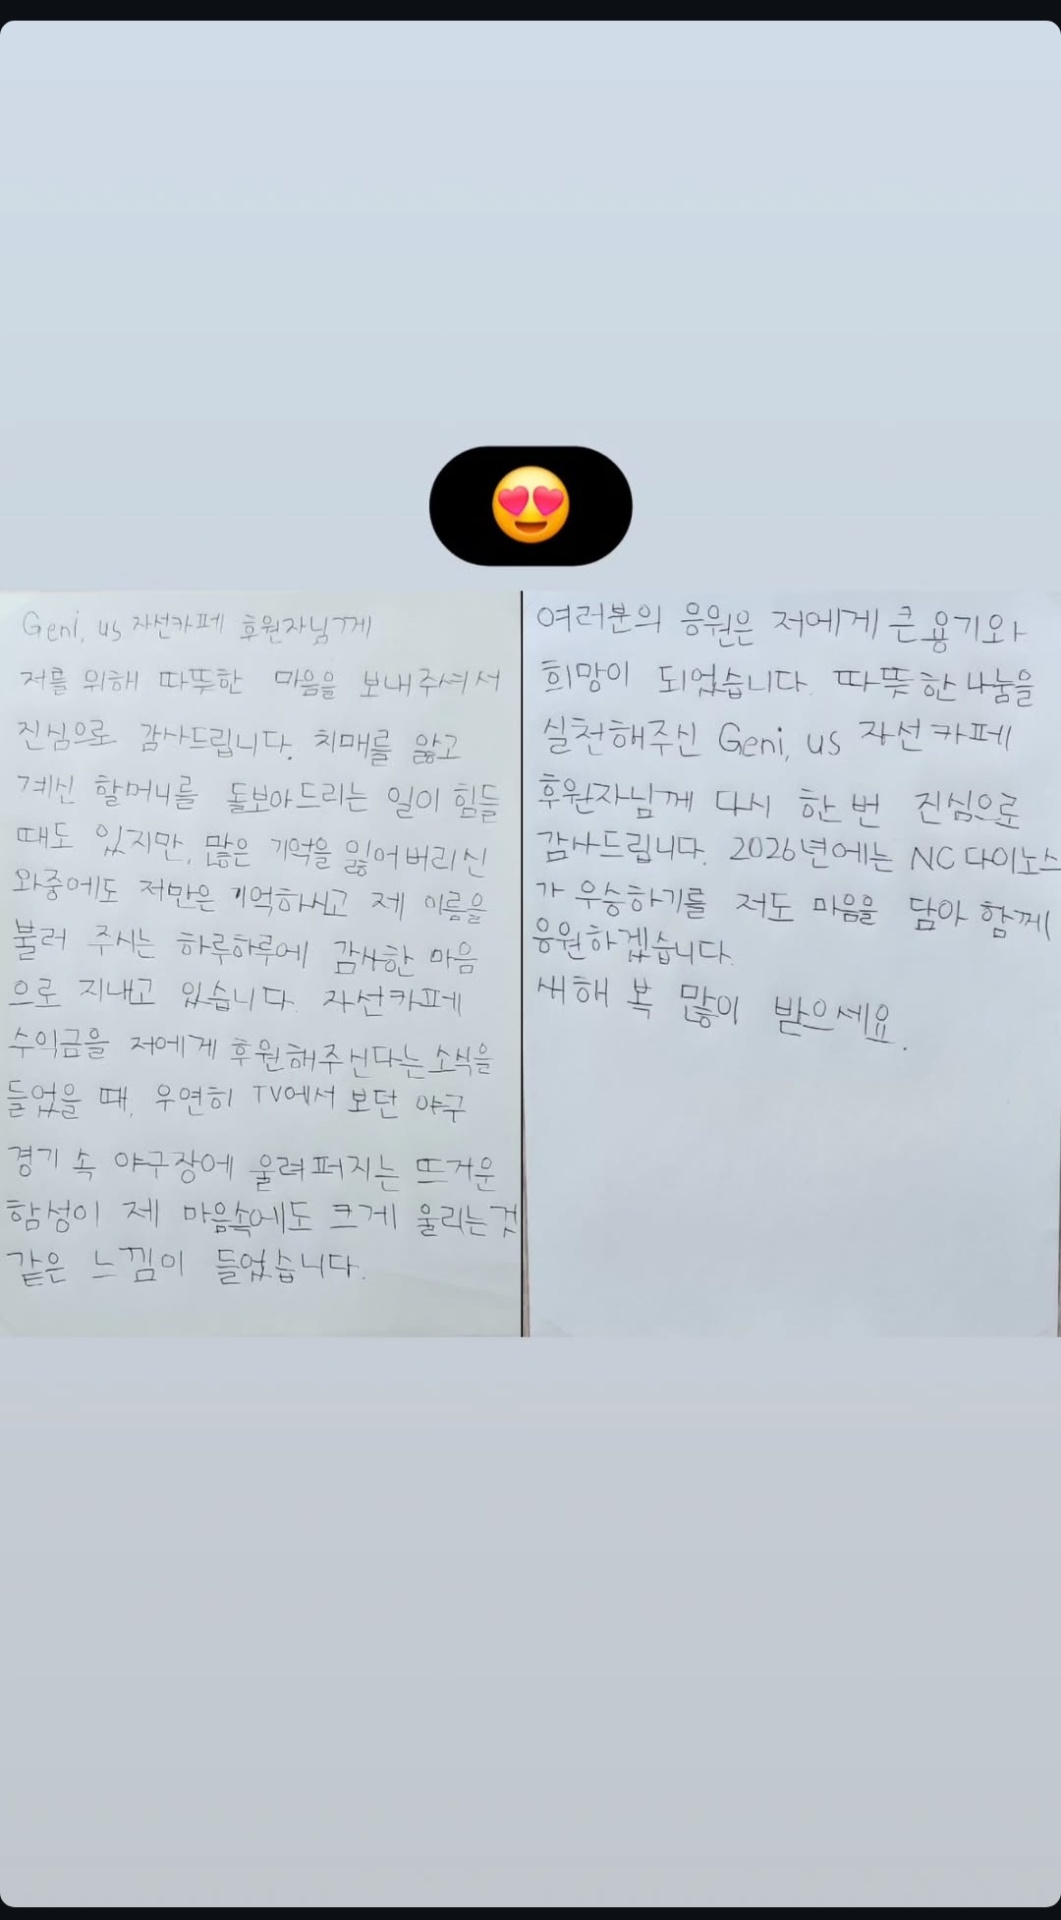 Geni, us 자선카페 후원자님께
저를 위해 따뚜한 마음을 보내주셔서
진심으로 감사드립니다. 치매를 앓고
계신 할머니를 돌보아드리는 일이 힘들
때도 있지만, 많은 기억을 잃어버리신
와중에도 저만은 기억하시고 제 이름을
불러 주시는 하루하루에 감사한 마음
으로 지내고 있습니다. 자선카페
수익금을 저에게 후원해주신다는 소식을
들었을 때, 우연히 TV에서 보던 야구
경기 속 야구장에 울려퍼지는 뜨거운
함성이 제 마음속에도 크게 울리는것
같은 느낌이 들었습니다.
여러분의 응원은 저에게 큰 용기와
희망이 되었습니다. 따뜻한 나눔을
실천해주신 Geni, us 자선카페
후원자님께 다시 한 번 진심으로
감사드립니다. 2026년에는 NC다이노스
가 우승하기를 저도 마음을 담아 함께
응원하겠습니다.
새해 복 많이 받으세요.